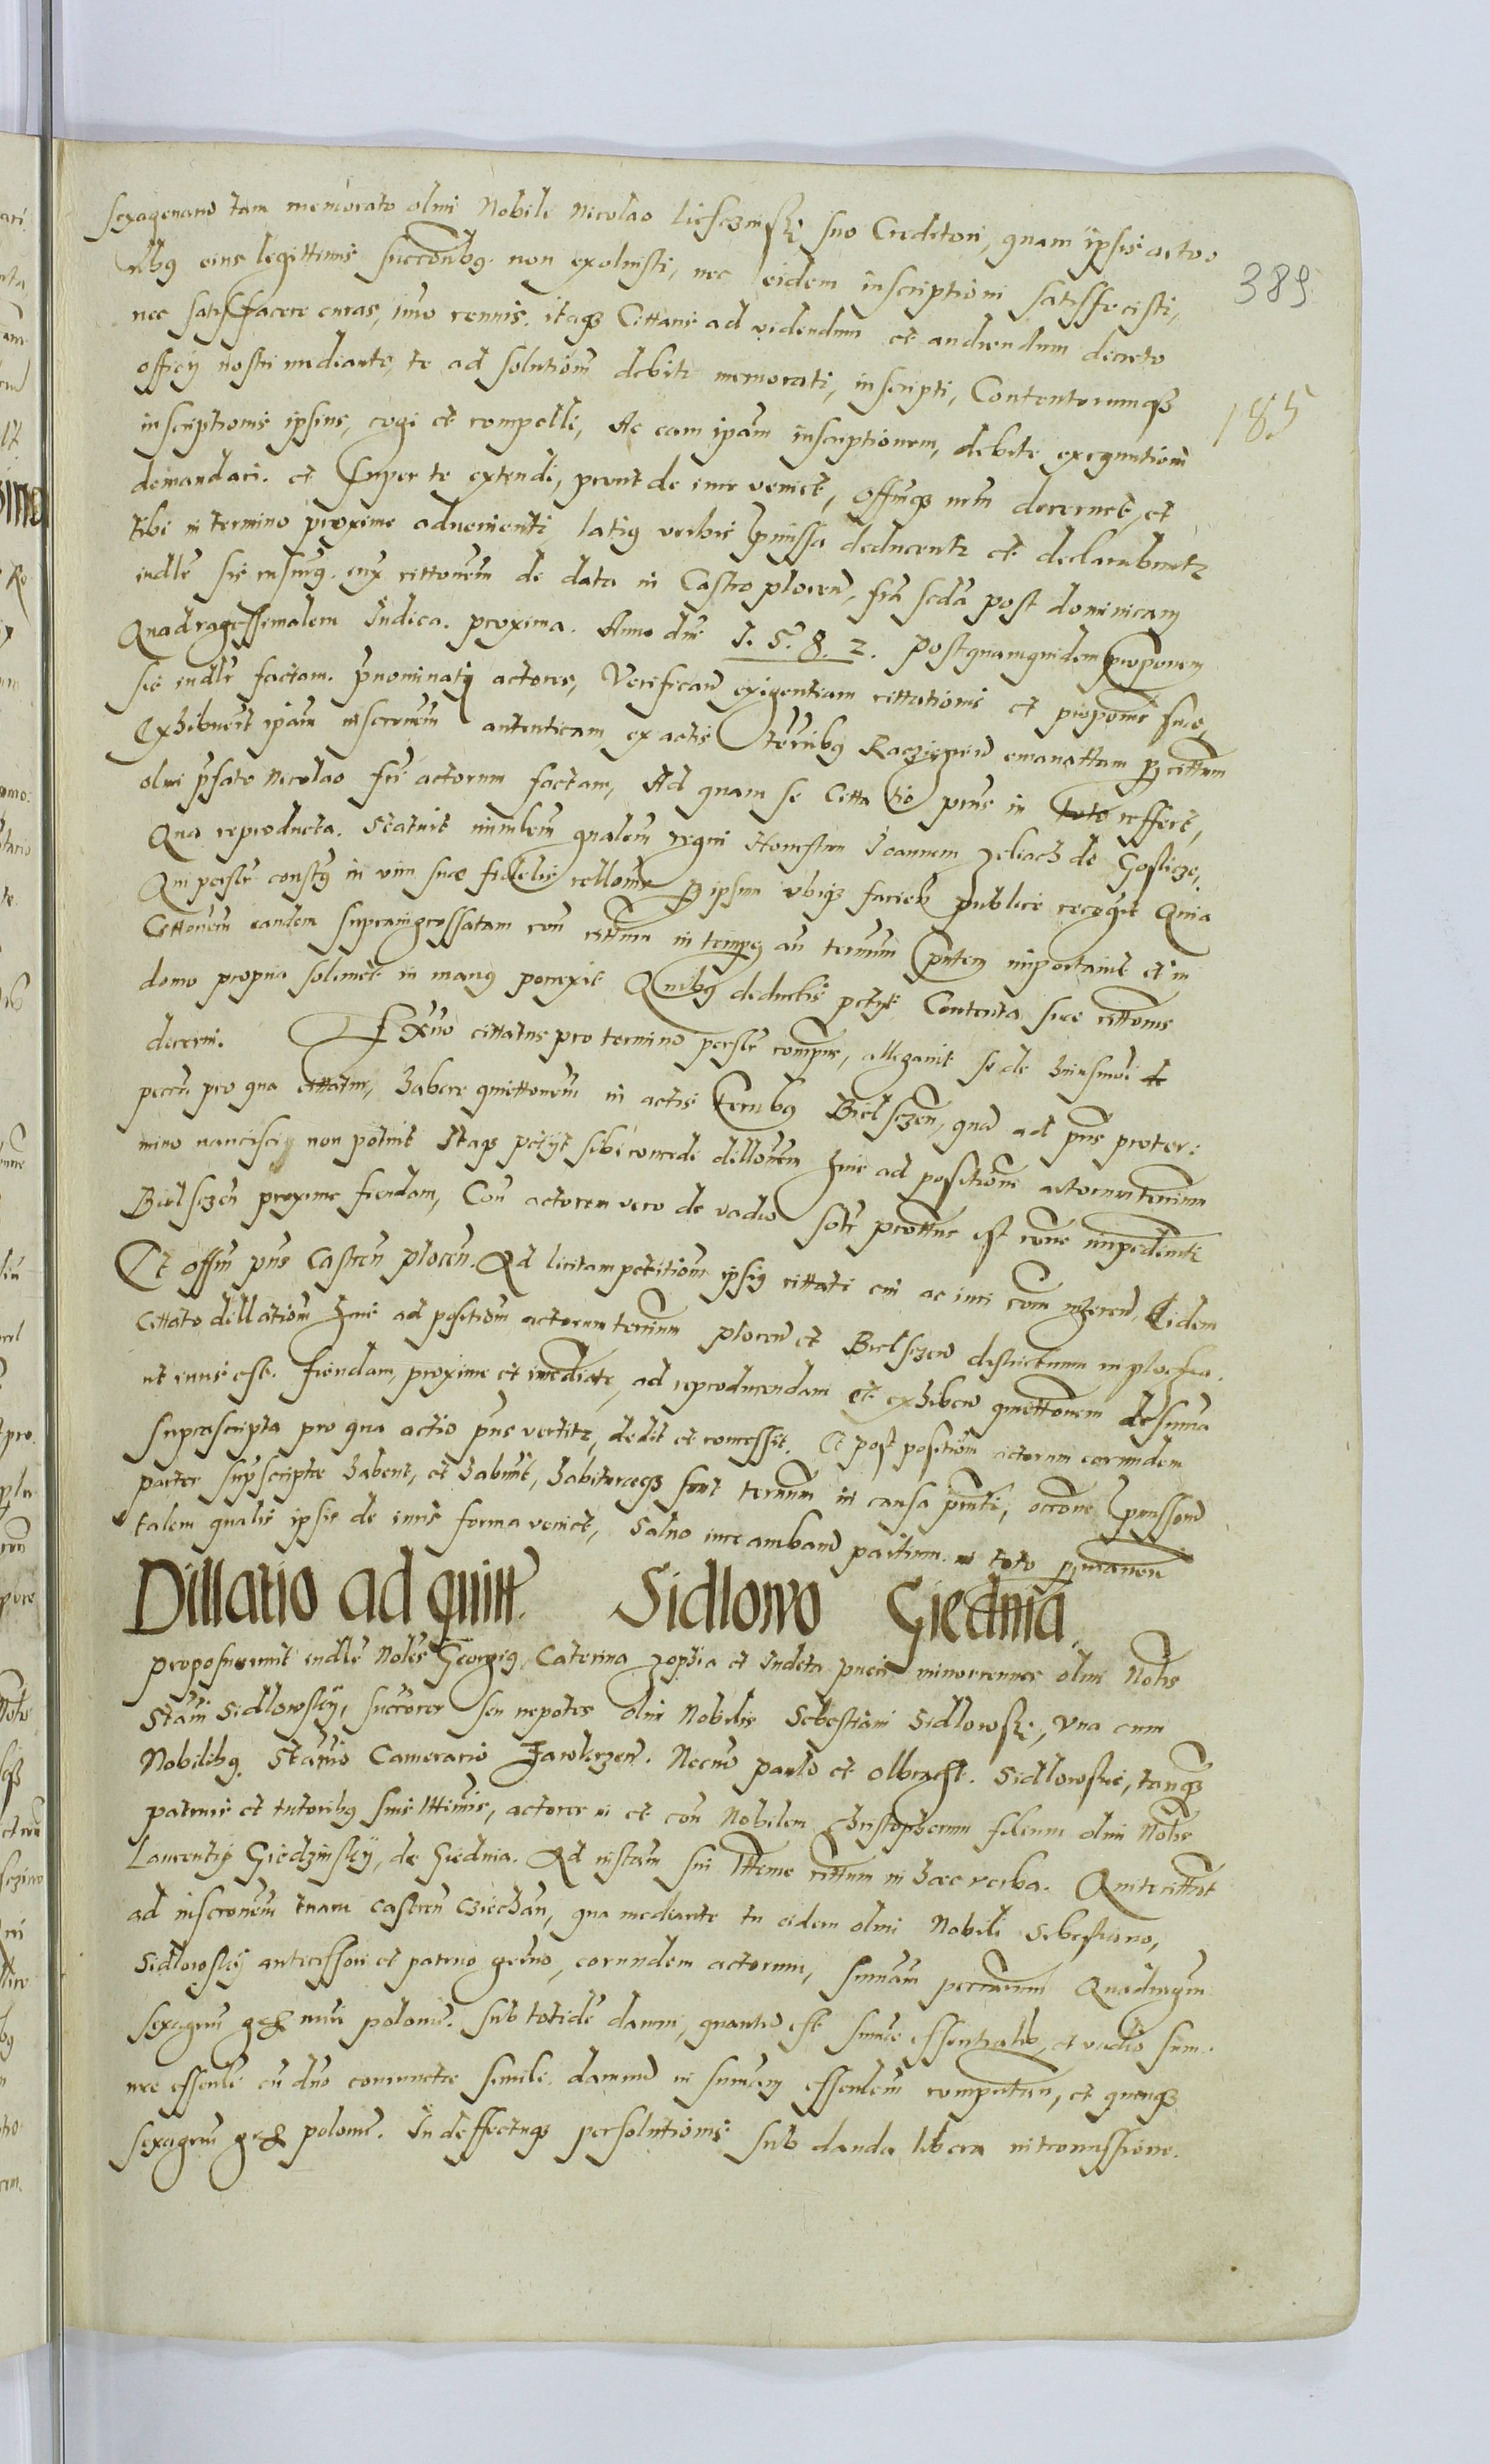 sexagenarum tam memorato olim Nobili Nicolao Liesczinskj suo Creditori, quam ipsis acto-
ribus eius legittimis succoribus non exoluisti, nec eidem inscriptioni satisffecisti,
389
nec satisffacere curas, imo rennis. itaqz Cittaris ad videndum et audiendum decreto
officij nostri mediante, te ad solutiom debiti memorati, inscripti, Contentorumqz
185
inscriptionis ipsius, cogi et compelli, Ac eam ipam inscriptionem, debite exequutioni
demandari. et super te extendi, prout de iure veniet, offmqz nrm decernet, et
tibi in termino proxime aduenienti latius verbis pmissa deducentr et declarabuntr
indle sis
cittonem de data in Castro plocen, fria scda post dominicam
Quadragessimalem Indica. proxima. Anno dni 1.5.8.2. Postquamquidem proponem
sic indlr factam. pnominatj actores, Verificand exigentiam cittationis et proponis sue,
Exhibuert ipam inscronem autenticam, ex actis terribus Raczigzen emanattam p cittum
olim pfato Nicolao fri actorum factam, Ad quam se Cittatio pns in toto reffert,
Qua reproducta. Statuit minlem qualem regni Honestum Joannem zeliach de Goslicze,
Qui persler constus in vim sue fidelis rellonis p ipsum vbiqz faciens publice recogt Quia
Cittonem eandem supraingrossatam con cittum in tempus an termm pntem importauit et in
domo propria solimet in manus porrexit Quibus deductis petyt Contenta sue cittonis
decerni. Ex aduo cittatus pro termino persler comprns, allegauit se de huiusmodi
pecun pro qua cittatur, habere quiettonem in actis terribus Bielsczen, qua ad pns proter:
mino nancisci non potuit Itaqz petyt sibi concedi dillonem huic ad positiom actorum terrium
Bielsczen proxime fiendam, Con actorem vero de vadio soti prottus est rone impedimti
Et offm pns Castren plocen. Ad licitam petitiom ipsius cittati cui ac iuri com inherend, Eidem
Cittato dillatiom huic ad positiom actorum terrium plocen et Bielsczen districtuum in plocko.
ut iuris est. fiendam, proxime et imediate, ad reproducendam et exhibend quiettonem de summa
suprascripta pro qua actio pns vertitr, dedit et concessit. Et post positiom actorum eorundem
partes supscripte habent, et habunt, habituraeqz sunt termm in causa pnti, occone pmissom
talem qualis ipsis de iuris forma veniet, Saluo iure ambarum partium in toto pmanen
Dillatio ad quitt. Sidlowo Giednia.
Proposuerunt indlr Noles Georgius, Caterina Zophia et Indeta pueri minorennes olim Nolis
Stani Sidlowskij, succores seu nepotes olim Nobilis Sebestiani Sidlowskj, Vna cum
Nobilibus Stanio Camerario Zawkrzen. Necno paulo et Olbracht. Sidlowskie, tanqz
patruis et tutoribus suis lttimis, actores in et con Nobilem Christopherum filium olim Nolis
Laurentij Giedzinskij, de Giednia. Ad instam sui ltteme cittum in haec verba. Quitecittnt
ad inscronem tuam castren Cziechan, qua mediante tu eidem olim Nobili Sebestiano,
Sidlowskij antecessori et patruo geruo, eorundem actorum, summam pecuniarum Quadragin
sexagnm grs nuri polonm. sub totide damn, quantu est summe essentialis, et vadio sum-
me essenli cu duo coniuncte simili. damnu in summam essenlem computan, et quinqz
sexagnm grs polonm. In deffectuqz persolutionis sub danda libera intromissione.